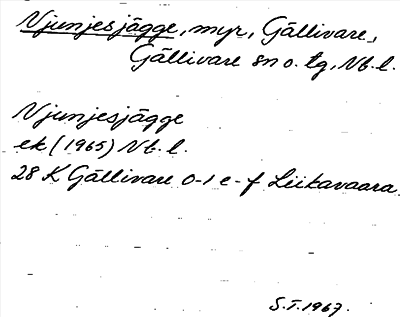 Njunjesjägge, myr, Gällivare,
Gällivare sn o. tg, Nb. l.
Njunjesjägge
ek (1965) Nb. l.
28 K Gällivare 0-1 e-f Liikavaara.
S.T. 1967.